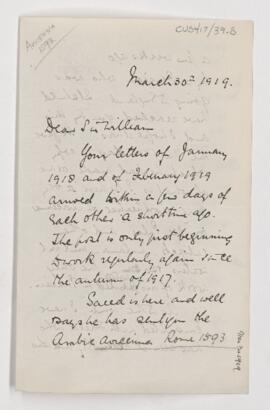 CUS417/39.8
Avicenna
1593
March 30th 1919.
Dear Sir William
Your letters of January
1918 and of February 1919
arrived within a few days of
each other a short time ago.
The post is only just beginning
to work regularly again since
the autumn of 1917.
Saeed is here and well
Says he has sent you the
Arabic Avicenna Rome 1593